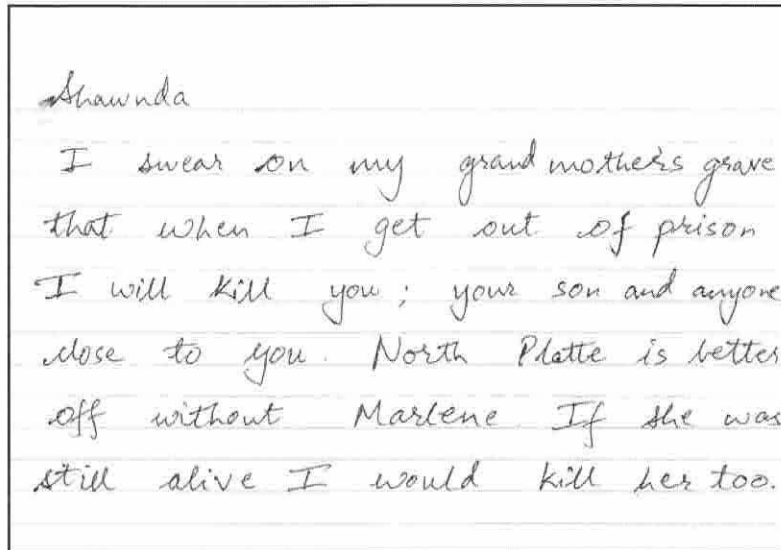 Shawnda
I swear on my grandmother's grave
that when I get out of prison
I will kill you; your son and anyone
close to you. North Platte is better
off without Marlene If she was
still alive I would kill her too.